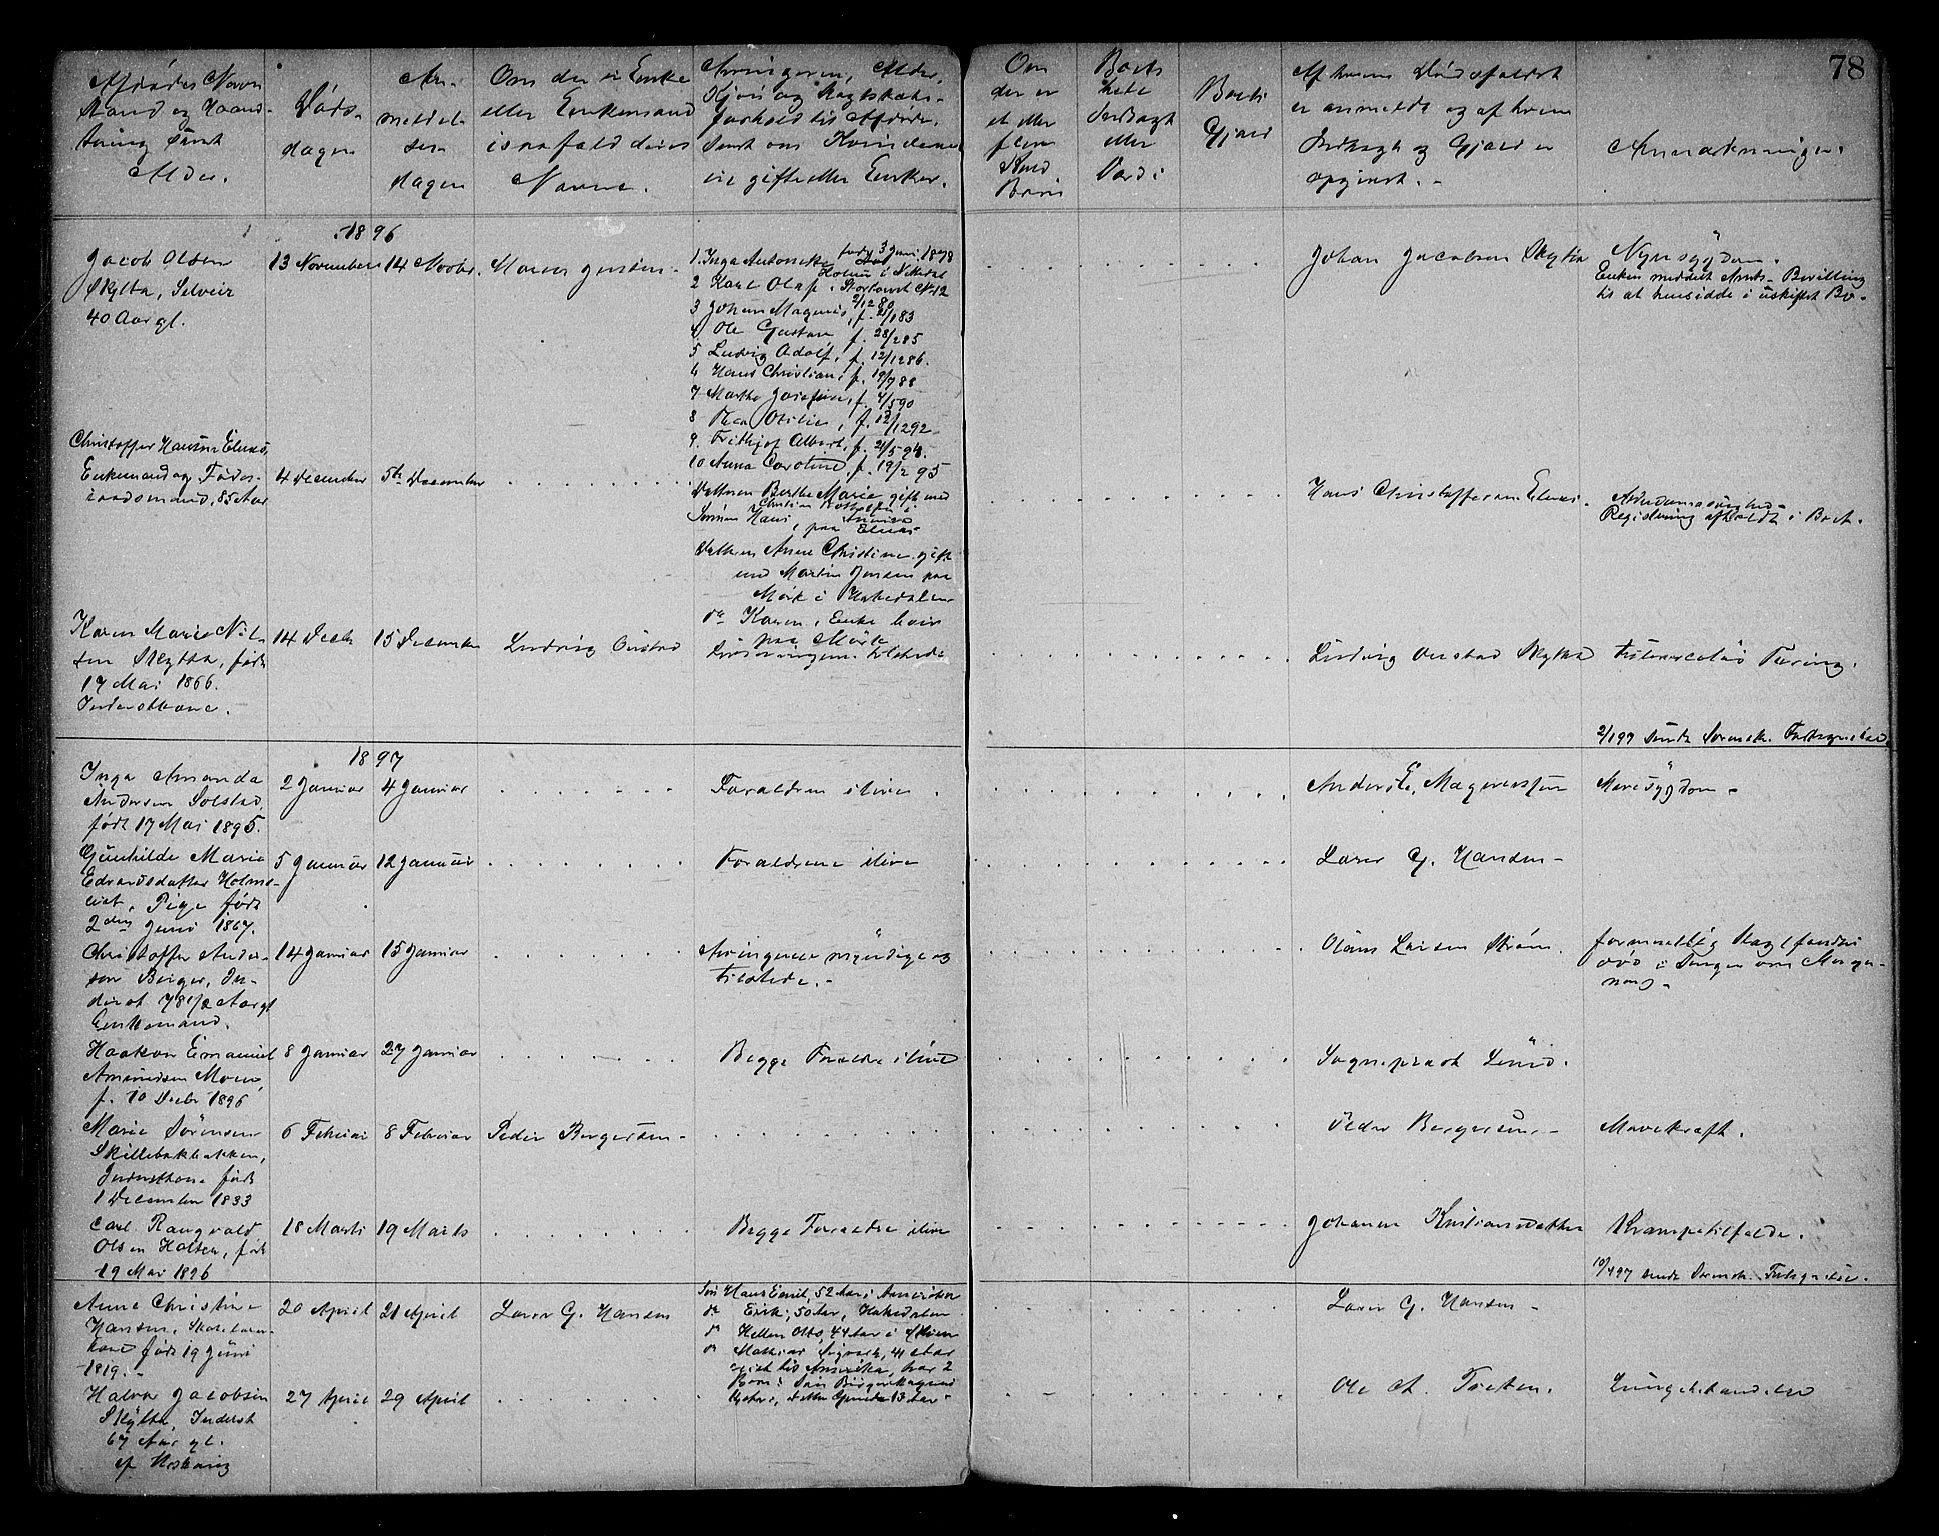 78
Afdødes Navn
Stand og Haand-
tering samt
Alder.
Døds-
dagen
An-
meldel-
ses-
dagen
Om der er Enke
eller Enkemand
i saafald deres
Navne.
Arvingerne, Alder,
Kjøn og Slægtskabs-
forhold til Afdøde.
Samt om Kvinderne
ere gifte eller Enker.
Om
der er
et eller
flere
Kuld
Børn
Boets
hele
Indtægt
eller
Værdi
Boets
Gjæld
Af hvem Dødsfaldet
er anmeldt og af hvem
Indtægt og Gjæld er
opgivet. -
Anmærkninger.
1896
Jacob Olsen
Skytta, Selveier
40 Aar gl.
13 November
14 Novbr.
Maren Jensen -
1. Inga Antonette født 3 Juni 1878
2 Karl Olaf i Stortinget N. 12
3 Johan Magnus, f. 21/1 83
4 Ole Gustav f. 28/2 85
5 Ludvig Adolf, f. 12/12 86.
6 Hans Christian, f. 19/7 88
7 Martha Josefine, f. 4/5 90
8 Thea Otilie, f. 12/12 92
9. Frithjof Albert, f. 21/5 94.
10 Anna Caroline, f. 19/2 95
Johan Jacobsen Skytta
Nyresygdom.
Enken meddelt Amts-Bevilling
til at hensidde i uskiftet Bo.
Christoffer Hansen Elnes,
Enkemand og Føde-
raadsmand, 85 Aar
4 December
5te December
Datteren Berthe Marie gift med
Sønnen Hans, paa Elnes
Datteren Anne Christine gift
med Martin Jensen paa
Mørk i Hakedalen
do Karen, Enke boer
paa Mörk
Hans Christoffersen Elnes.
Alderdomssvaghed -
Registrering afholdt i Boet.
Karen Marie Nil-
sen Skytta, født
17 Mai 1866.
Inderstkone.
14 Decbr
15 December
Ludvig Onstad
Livsarvingen tilstede
Ludvig Onstad Skytta
Tuberculös Tæring.
2/1 97 sendt Sorensk. Fortegnelse.
1897
Inga Amanda
Andersen Solstad,
født 17 Mai 1895.
2 Januar
4 Januar
Forældrene ilive
Anders E. Magnussen
Mavesygdom -
Gunhilde Marie
Edvardsdatter Holms-
eiet, Pige født
2den Juni 1867.
5 Januar
12 Januar
Forældrene ilive
Lars G. Hansen -
Christoffer Ander-
sen Berger, In-
derst 78 1/2 Aar gl
Enkemand.
14 Januar
15 Januar
Arvingerne myndige og
tilstede. -
Olaus Larsen Strøm.
formentlig Slag fandtes
død i Sengen om Morge-
nen -
Haakon Emanuel
Amundsen Moen,
f. 10 Decbr 1896
8 Januar
27 Januar
Begge Forældre ilive
Sogneprest Lund.
Marie Sørensen
Skillebækbakken,
Inderstkone født
1 December 1833
6 Februar
8 Februar
Peder Bergersen -
Peder Bergersen -
Mavekræft.
Carl Rangvald
Olsen Holter, født
19 Mai 1896
18 Marts
19 Marts
Begge Forældre ilive
Johanne Kristiansdatter
Krampetilfælde.
10/4 97 sendt Sorensk. Fortegnelse.
Anne Christine
Hansen,
kone født 19 Juni
1819. -
20 April
21 April
Lars G. Hansen
Søn Hans Emil, 52 Aar i Amerika
do Erik, 50 Aar, Hakedalen
do Hellen Otto, 44 Aar i
do Mathias Sigvart, 41 Aar
reist til Amerika, har 2
Børn: Søn
Lars G. Hansen -
Halvor Jacobsen
Skytta, Inderst
67 Aar gl.
27 April
29 April
Ole A. Træten.
Lungebetændelse